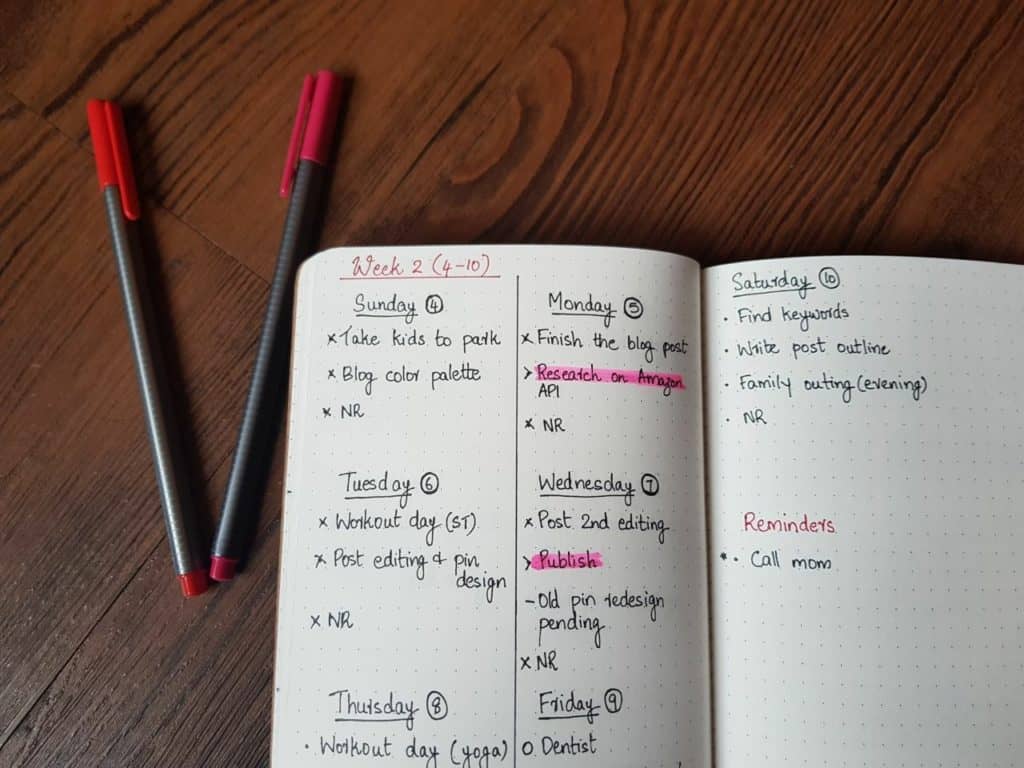 Week 2 (4-10)
Sunday ④
× Take kids to park
× Blog color palette
× NR
Monday ⑤
× Finish the blog post
> Research on Amazon
API
× NR
Tuesday ⑥
× Workout day (ST)
× Post editing & pin
design
× NR
Wednesday ⑦
× Post 2nd editing
> Publish
- Old pin redesign
pending
× NR
Thursday ⑧
· Workout day (yoga)
Friday ⑨
O Dentist
Saturday ⑩
· Find keywords
· Write post outline
· Family outing (evening)
· NR
Reminders
* · Call mom